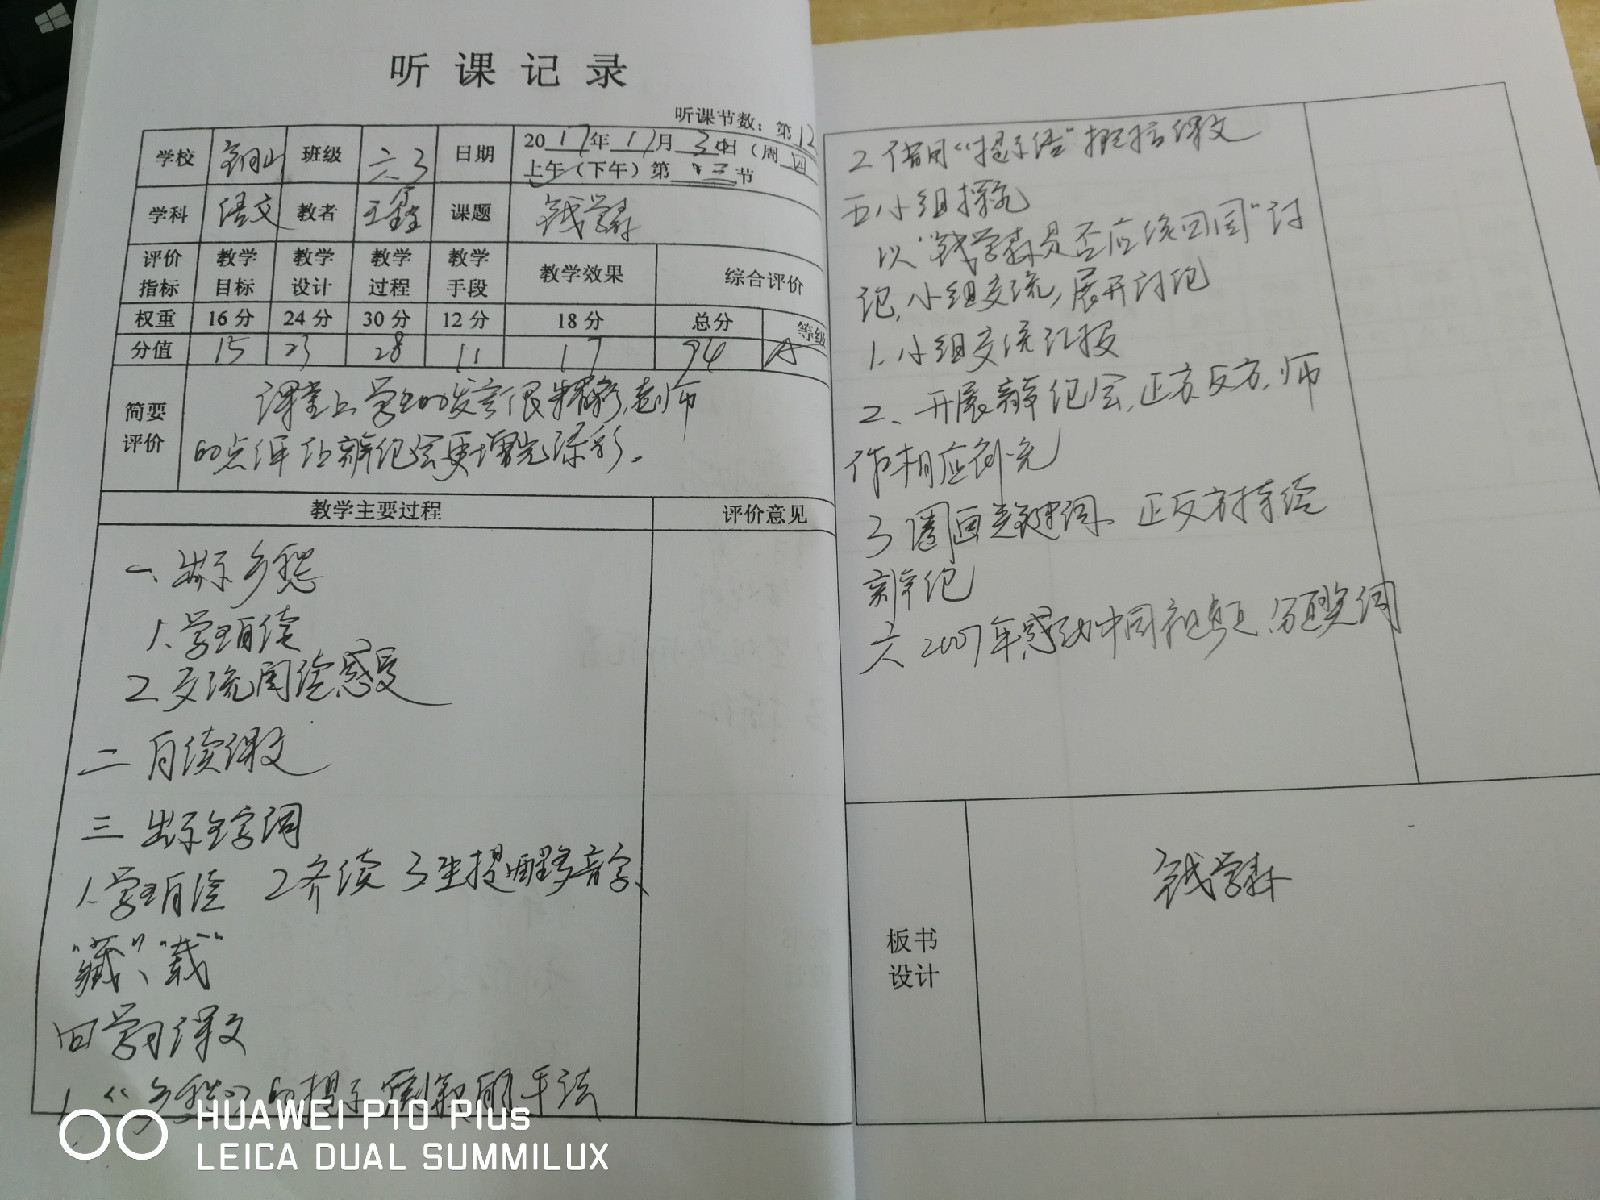 听课记录
听课节数：第12
学校 铜山 班级 六3 日期 2017年11月30日（周四
上午（下午）第 节
学科 语文 教者 王 课题 钱学森
评价指标 教学目标 教学设计 教学过程 教学手段 教学效果 综合评价
权重 16分 24分 30分 12分 18分 总分 等级
分值 15 23 28 11 17 94 A
简要评价
课堂上学生的发言很精彩，老师
的点评让辩论会更增光添彩。
教学主要过程 评价意见
一、出示乡愁
1、学生自读
2、交流阅读感受
二 自读课文
三 出示生字词
1、学生自读 2 齐读 3 生提醒多音字、
“藏”、“载”
四 学习课文
1、《乡愁》的提示
2 借用“提示语”概括课文
五 小组探究
以“钱学森是否应该回国”讨
论，小组交流，展开讨论
1、小组交流汇报
2、开展辩论会，正方反方，师
作相应补充
3 圈画关键词、正反方持续
辩论
六 2007年感动中国 颁奖词
板书设计
钱学森
HUAWEI P10 Plus
LEICA DUAL SUMMILUX